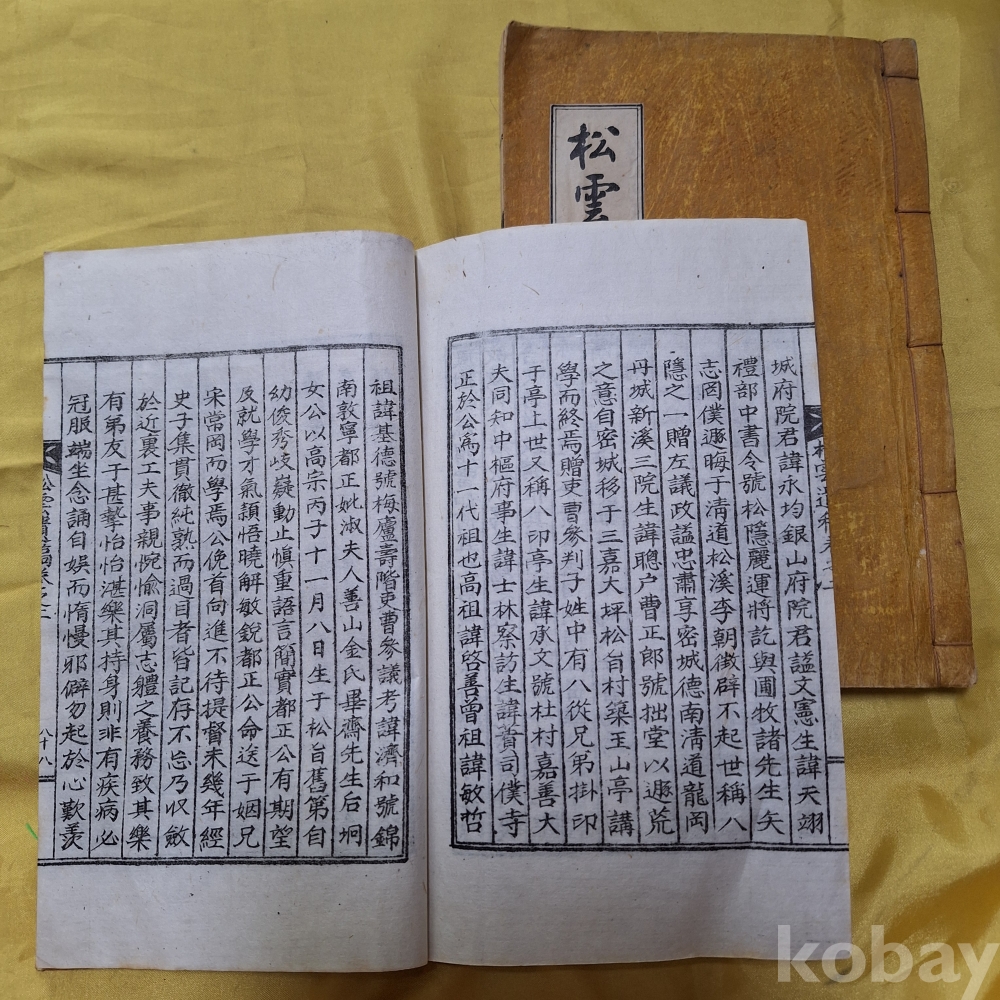 松雲
城府院君諱永均銀山府院君謚文憲生諱天翊
禮部中書令號松隱麗運將訖與圃牧諸先生矢
志罔僕遯晦于清道松溪李朝徴辟不起世稱八
隱之一贈左議政謚忠肅享密城德南清道龍岡
丹城新溪三院生諱聰户曹正郎號拙堂以遯荒
之意自密城移于三嘉大坪松旨村築王山亭講
學而終焉贈吏曹參判子姓中有八從兄弟掛印
于亭上世又稱八印亭生諱承文號杜村嘉善大
夫同知中樞府事生諱士林察訪生諱賓司僕寺
正於公爲十二代祖也高祖諱啓善曾祖諱敏哲
祖諱基德號梅廬壽階吏曹參議考諱濟和號錦
南敦寧都正妣淑夫人善山金氏畢齋先生后坰
女公以高宗丙子十一月八日生于松旨舊第自
幼俊秀岐嶷動止愼重語言簡實都正公有期望
及就學才氣頴悟曉解敏銳都正公命送于姻兄
宋常岡而學焉公俛首向進不待提督未幾年經
史子集貫徹純熟而過目者皆記存不忘乃収斂
於近裏工夫事親惋愉洞屬志體之養務致其樂
有第友于甚摯怡怡湛樂其持身則非有疾病必
冠服端坐念誦自娯而惰慢邪僻勿起於心歎羨
八十八
kobay